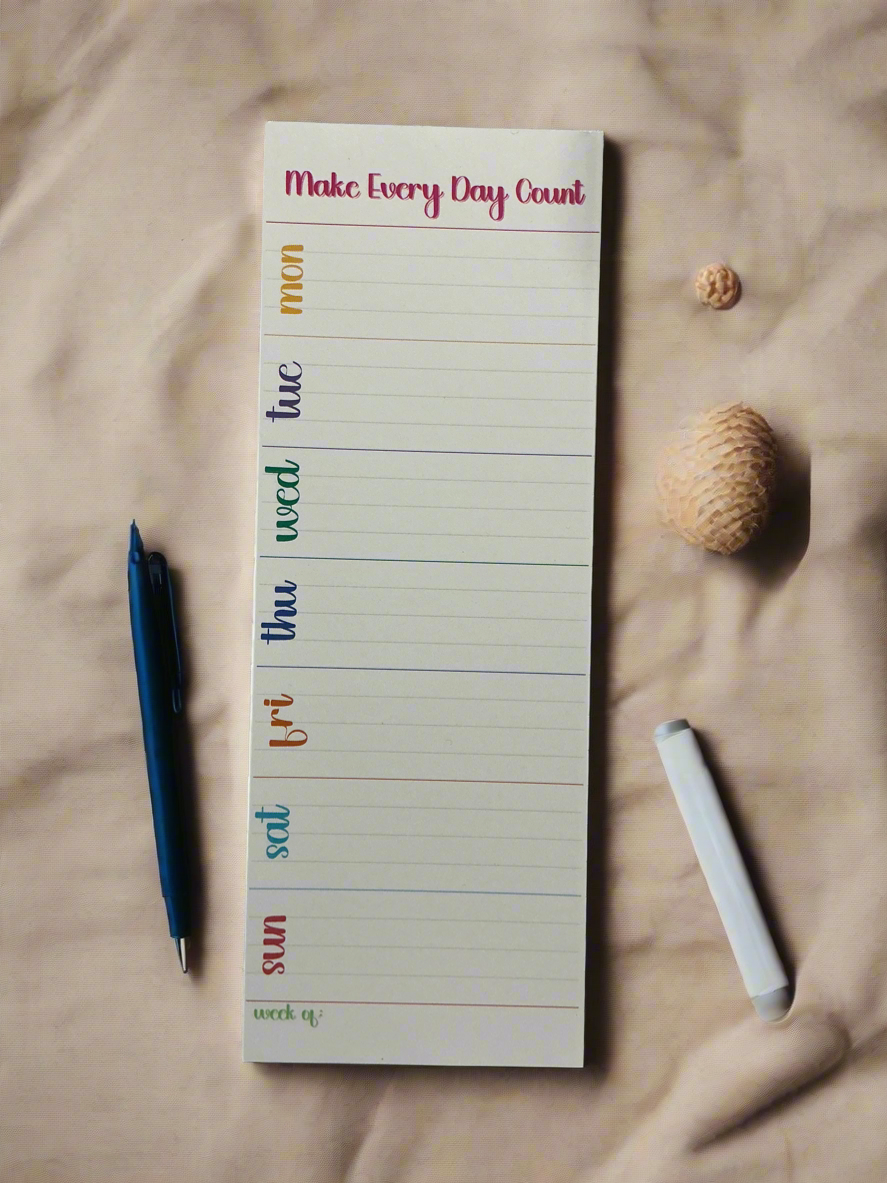 Make Every Day Count
mon
tue
wed
thu
fri
sat
sun
week of: